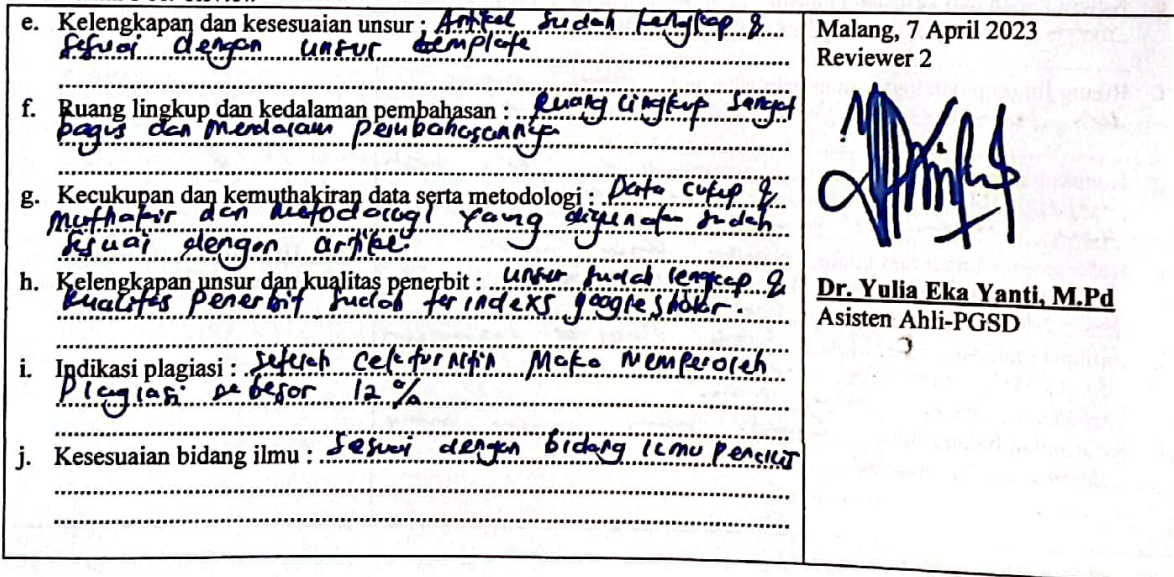 e. Kelengkapan dan kesesuaian unsur : Artikel sudah lengkap &
sesuai dengan unsur template
f. Ruang lingkup dan kedalaman pembahasan : Ruang lingkup sangat
bagus dan mendalam pembahasannya
g. Kecukupan dan kemuthakiran data serta metodologi : Data cukup &
muthakir dan metodologi yang digunakan sudah
sesuai dengan artikel
h. Kelengkapan unsur dan kualitas penerbit : unsur sudah lengkap &
kualitas penerbit sudah terindeks google skolar.
i. Indikasi plagiasi : setelah cek turnitin Maka Memperoleh
Plagiasi sebesar 12 %
j. Kesesuaian bidang ilmu : sesuai dengan bidang ilmu penulis
Malang, 7 April 2023
Reviewer 2
Dr. Yulia Eka Yanti, M.Pd
Asisten Ahli-PGSD